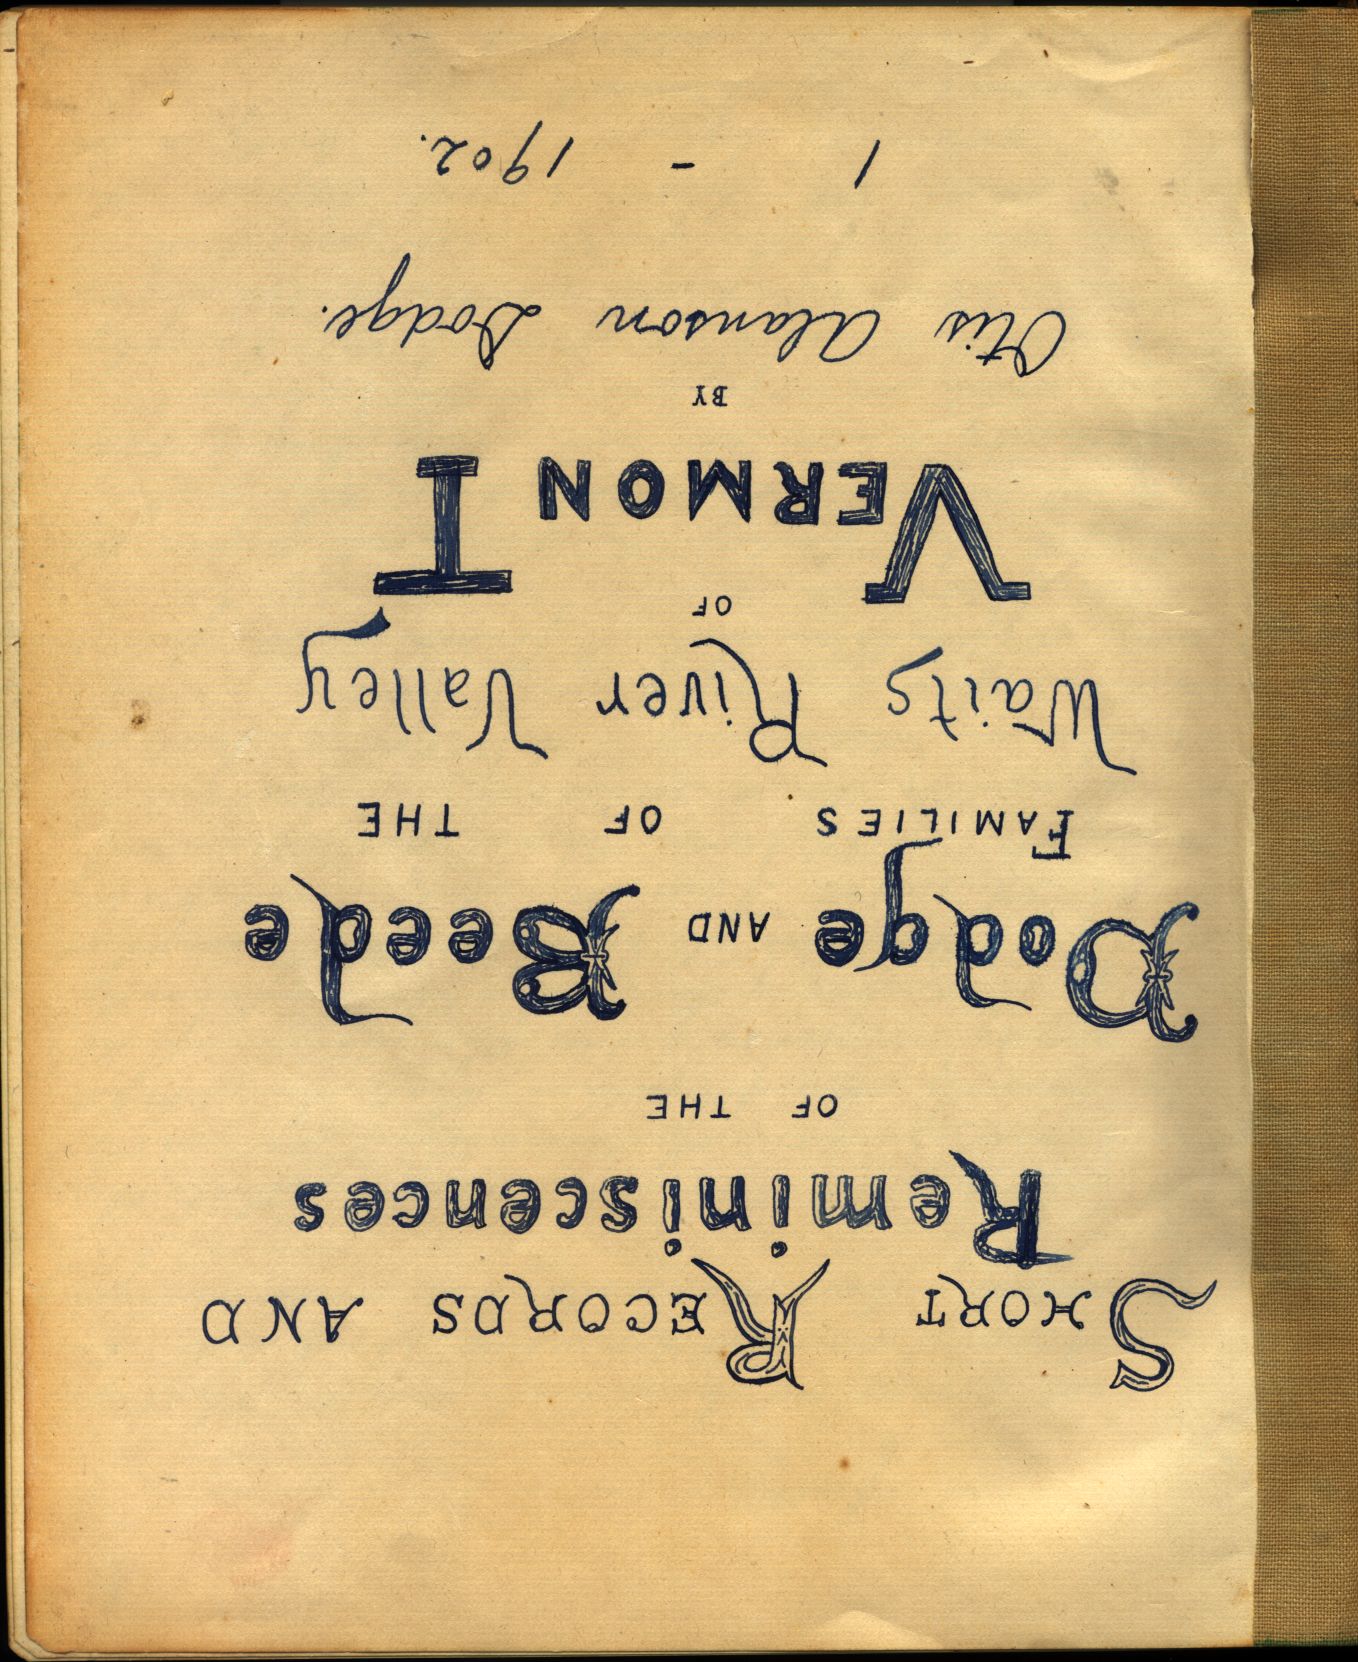 SHORT RECORDS AND
Reminiscences
OF THE
Dodge AND Beede
FAMILIES OF THE
Waits River Valley
OF
VERMONT
BY
Otis Alanson Dodge.
1 - 1902.